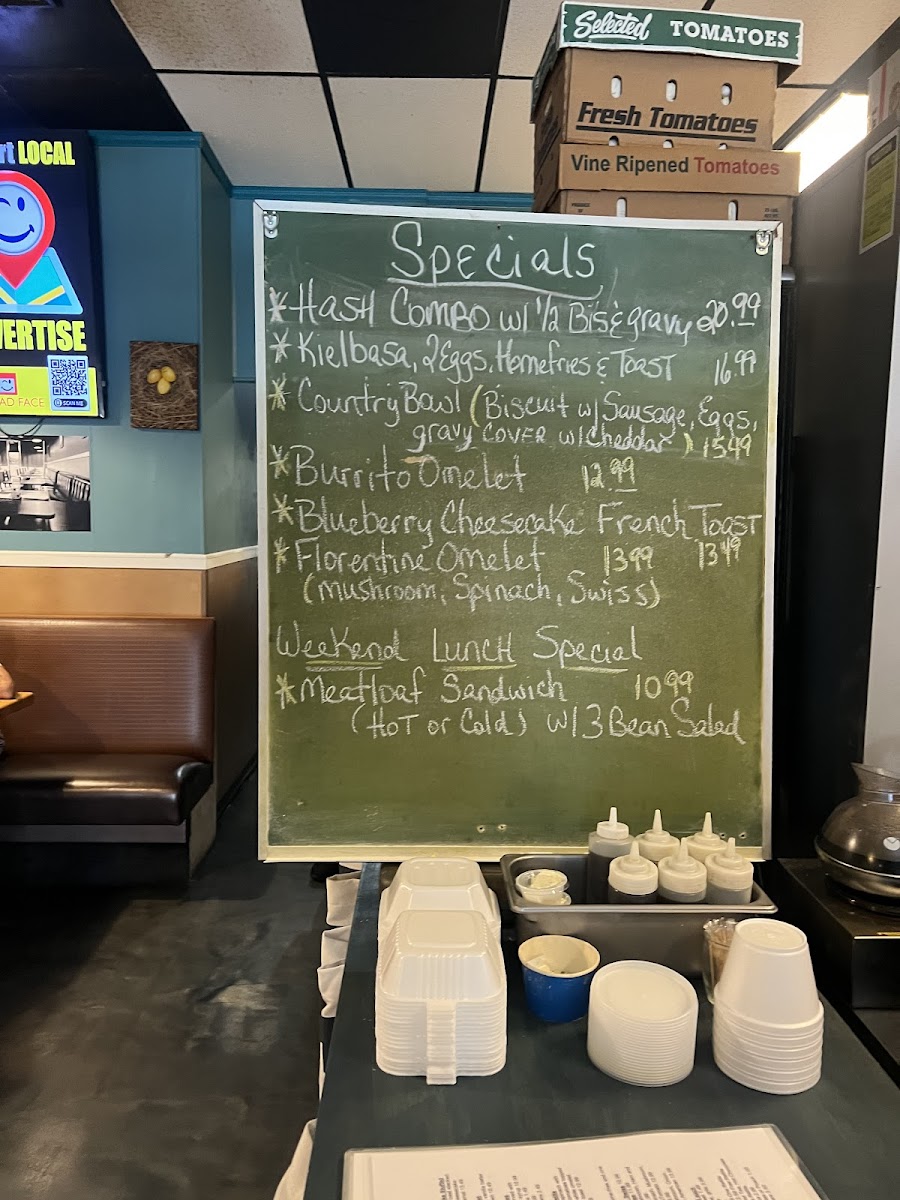 Selected TOMATOES
Fresh Tomatoes
Vine Ripened Tomatoes
LOCAL
SCAN ME
Specials
* Hash Combo w/ 1/2 Bis & gravy 20.99
* Kielbasa, 2 Eggs, Homefries & Toast 16.99
* Country Bowl (Biscuit w/ Sausage, Eggs,
gravy cover w/ Cheddar) 15.49
* Burrito Omelet 12.99
* Blueberry Cheesecake French Toast
13.49
* Florentine Omelet 13.99
(mushroom, Spinach, Swiss)
Weekend Lunch Special
* Meatloaf Sandwich 10.99
(Hot or Cold) w/ 3 Bean Salad